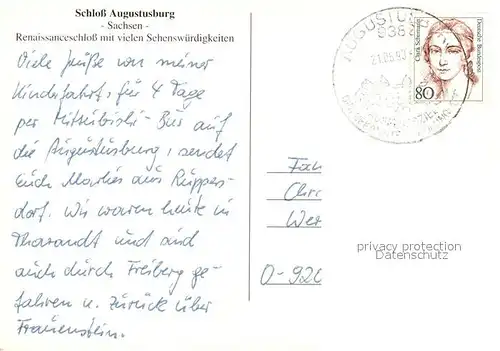 Schloß Augustusburg
- Sachsen -
Renaissanceschloß mit vielen Sehenswürdigkeiten
Viele Grüße von meiner
Kinderfahrt, für 4 Tage
per Mitsubishi-Bus auf
die Augustusburg, sendet
Euch Marlies aus Ruppers-
dorf. Wir waren heute in
Tharandt und sind
auch durch Freiberg ge-
fahren u. zurück über
Frauenstein.
AUGUSTUSB
9382
21.05.92
Clara Schumann
Deutsche Bundespost
80
Fam
Chr
Wer
O-920
privacy protection
Datenschutz